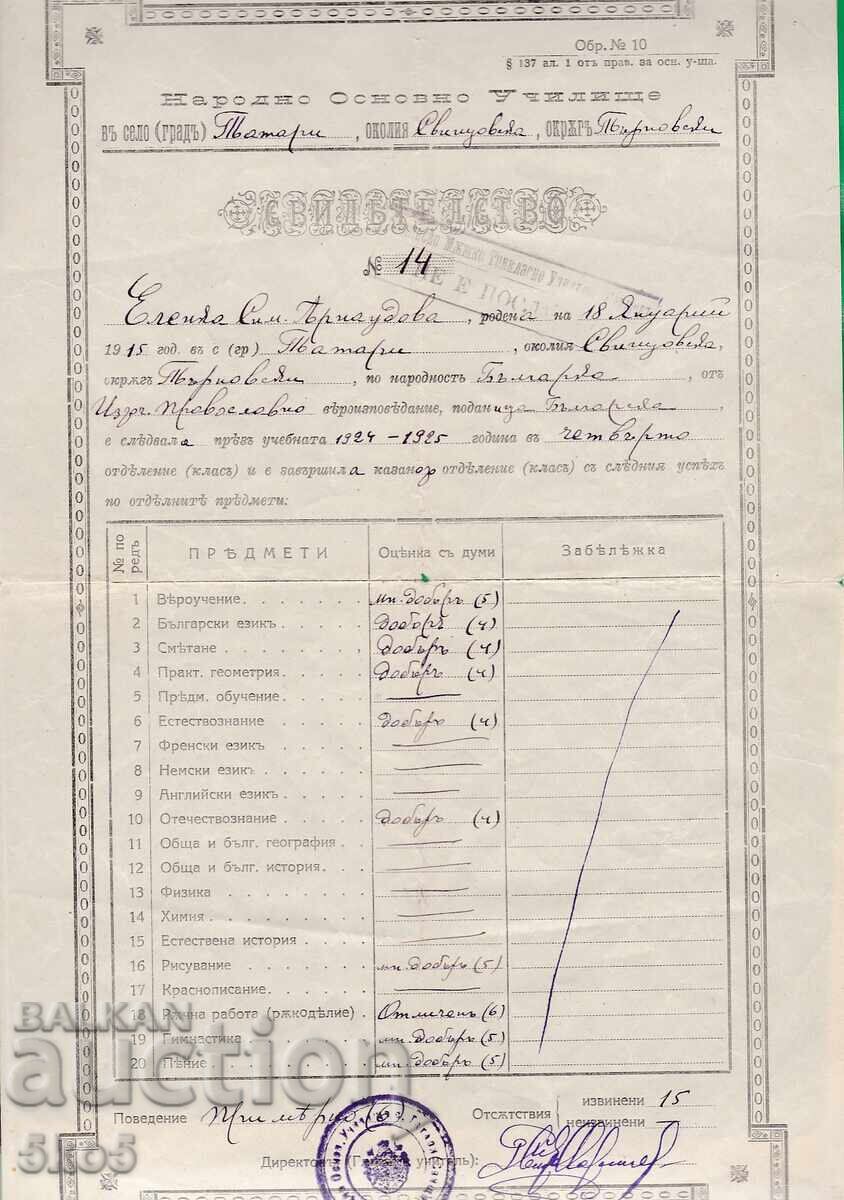 Обр. № 10
§ 137 ал. 1 отъ прав. за осн. у-ща.
Народно Основно Училище
въ село (градъ) Татари, околия Свищовска, окрѫгъ Търновски
СВИДѢТЕЛСТВО
№ 14
НЕ Е ПОСЛ
Еленка Сим. Арнаудова, родена на 18 Януарий
1915 год. въ с (гр) Татари, околия Свищовска,
окрѫгъ Търновски, по народность Българка, отъ
Изт. Провославно вѣроизповѣдание, поданица Българска,
е слѣдвала презъ учебната 1924-1925 година въ четвърто
отдѣление (класъ) и е завършила казаноз отдѣление (класъ) съ слѣдния успѣхъ
по отдѣлнитѣ прѣдмети:
№ по редъ ПРѢДМЕТИ Оцѣнка съ думи Забѣлѣжка
1 Вѣроучение мн. добъръ (5)
2 Български езикъ добъръ (4)
3 Смѣтане добъръ (4)
4 Практ. геометрия добъръ (4)
5 Прѣдм. обучение
6 Естествознание добъръ (4)
7 Френски езикъ
8 Немски езикъ
9 Английски езикъ
10 Отечествознание добъръ (4)
11 Обща и бълг. география
12 Обща и бълг. история
13 Физика
14 Химия
15 Естествена история
16 Рисуване мн. добъръ (5)
17 Краснописание
18 Рѫчна работа (рѫкодѣлие) Отличенъ (6)
19 Гимнастика мн. добъръ (5)
20 Пѣние мн. добъръ (5)
Поведение Примѣрно (6) Отсѫтствия извинени 15
неизвинени
Директоръ (Главенъ учитель):
BALKAN
auction
5105